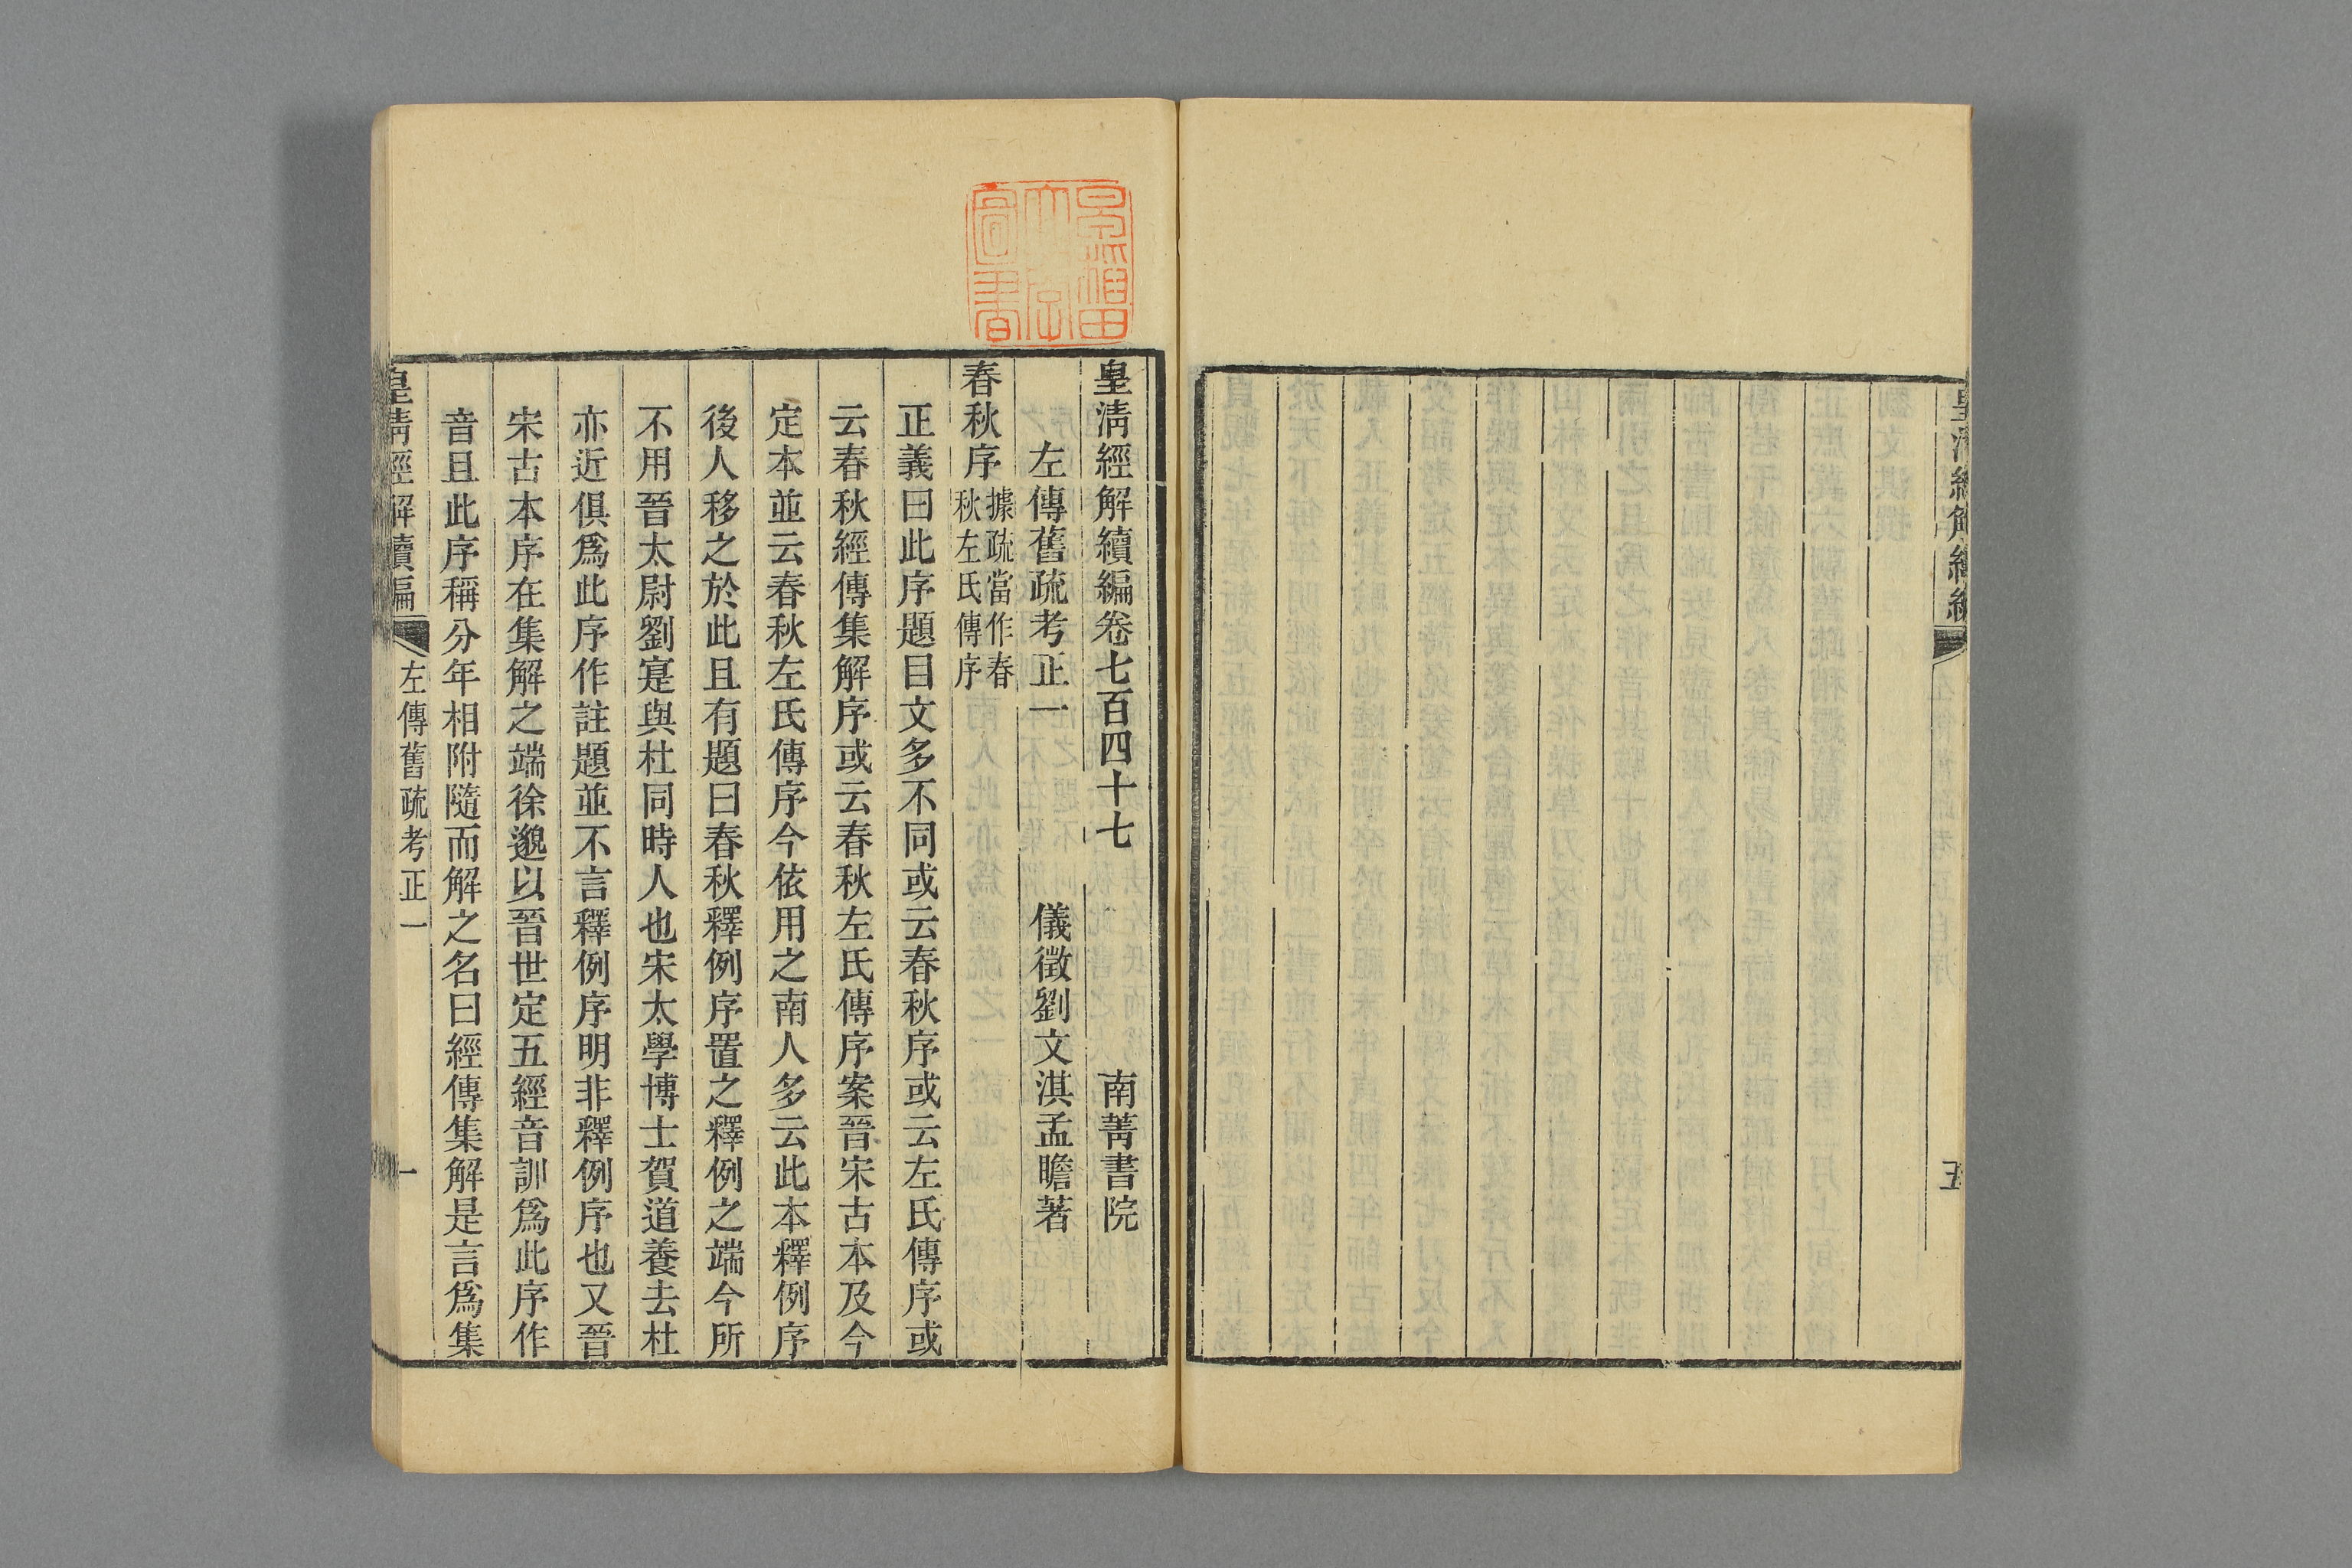 皇清經解續編卷七百四十七　南菁書院
左傳舊疏考正一　儀徵劉文淇孟瞻著
春秋序據疏當作春秋左氏傳序
正義曰此序題目文多不同或云春秋序或云左氏傳序或
云春秋經傳集解序或云春秋左氏傳序案晉宋古本及今
定本並云春秋左氏傳序今依用之南人多云此本釋例序
後人移之於此且有題曰春秋釋例序置之釋例之端今所
不用晉太尉劉寔與杜同時人也宋太學博士賀道養去杜
亦近俱爲此序作註題並不言釋例序明非釋例序也又晉
宋古本序在集解之端徐邈以晉世定五經音訓爲此序作
音且此序稱分年相附隨而解之名曰經傳集解是言爲集
皇清經解續編　左傳舊疏考正一　一